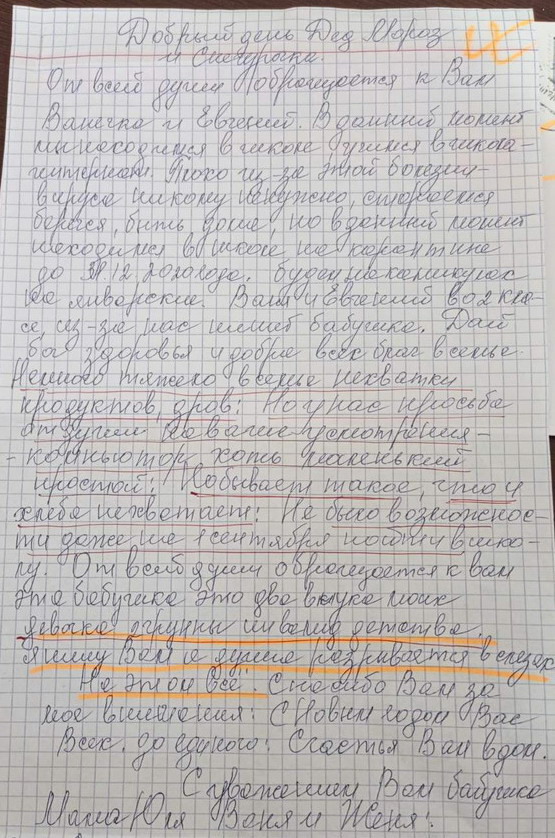 Добрый день Дед Мороз
и Снегурочка.
От всей души обращается к Вам
Ванечка и Евгений. В данный момент
мы находимся в школе учимся в школа-
интернат. Плохо из-за этой болезни-
вируса никому ненужно, стараемся
беречся, быть дома, но в данный момент
находимся в школе на карантине
до 12.2020 года. будем на каникулах
на январские. Ваня и Евгений во 2 кла-
се, из-за нас пишит бабушка. Дай
бог здоровья и добра всех благ в семье.
Немного тяжело в семье нехватки
продуктов, дров: Но у нас просьба
от души на ваше усмотрения-
- компьютор хоть маленький
простой: Но бывает такое, что и
хлеба нехватает: Не было возможнос-
ти даже на 1 сентября пойти в шко-
лу. От всей души обращается к вам
эта бабушка это два внука моих
2 группы инвалид детства,
я пишу Вам а душа разрывается в слезах
На этом всё. Спасибо Вам за
мое внимания: С Новым годом Вас
Всех. до единого: Счастья Вам в дом.
С уважением Вам бабушка
Мама Юля Ваня и Женя: